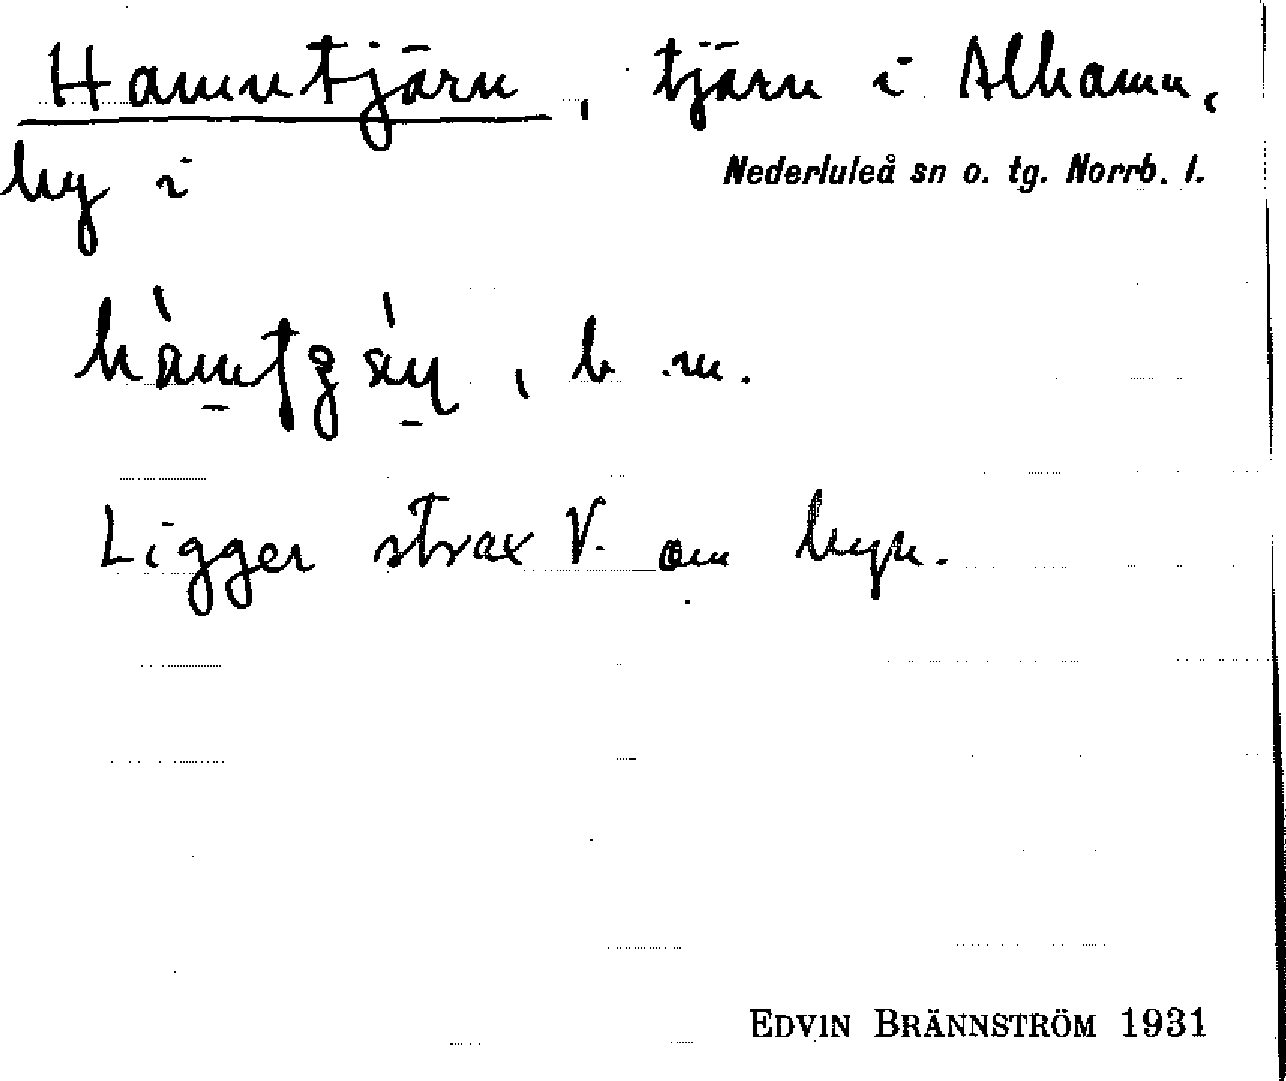 Hamntjärn, tjärn i Alhamn,
by i Nederluleå sn o. tg. Norrb. l.
, b. m.
Ligger strax V. om byn.
EDVIN BRÄNNSTRÖM 1931